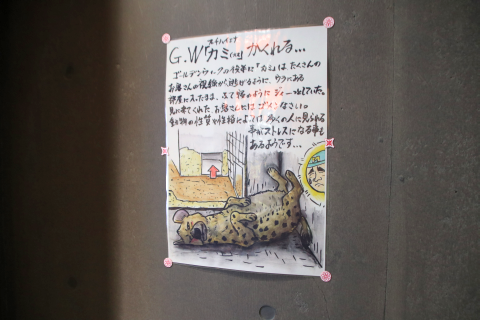 ブチハイエナ
G.W「カミ(メス)」かくれる…
ゴールデンウィークの後半に「カミ」はたくさんの
お客さんの視線から逃げるように、ウラにある
部屋に入ったまま、ふて寝のようにジーッとしていた。
見に来てくれたお客さんにはゴメンなさい。
動物の性質や性格によっては多くの人に見られる
事がストレスになる事も
あるようです…